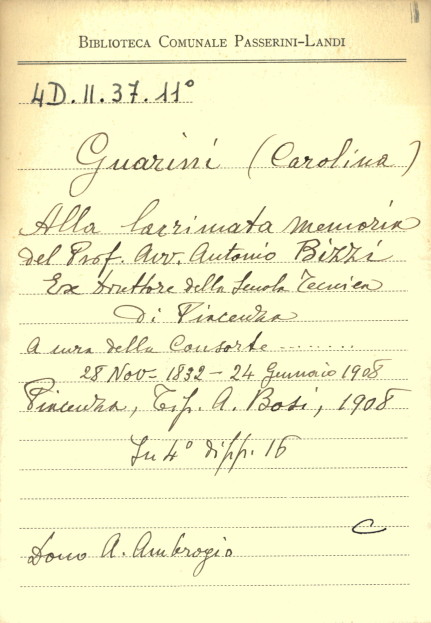 BIBLIOTECA COMUNALE PASSERINI-LANDI
4D.II.37.11°
Guarini (Carolina)
Alla lacrimata memoria
del Prof. Avv. Antonio Bizzi
Ex Direttore della Scuola Tecnica
di Piacenza
A cura della Consorte ........
28 Nov- 1832 – 24 Gennaio 1908
Piacenza, Tip. A. Bosi, 1908
In 4° di pp. 16
C
Dono A. Ambrogio